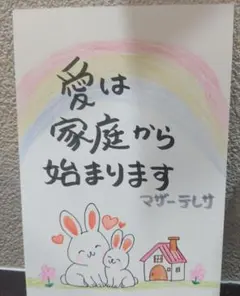 愛は
家庭から
始まります
マザーテレサ